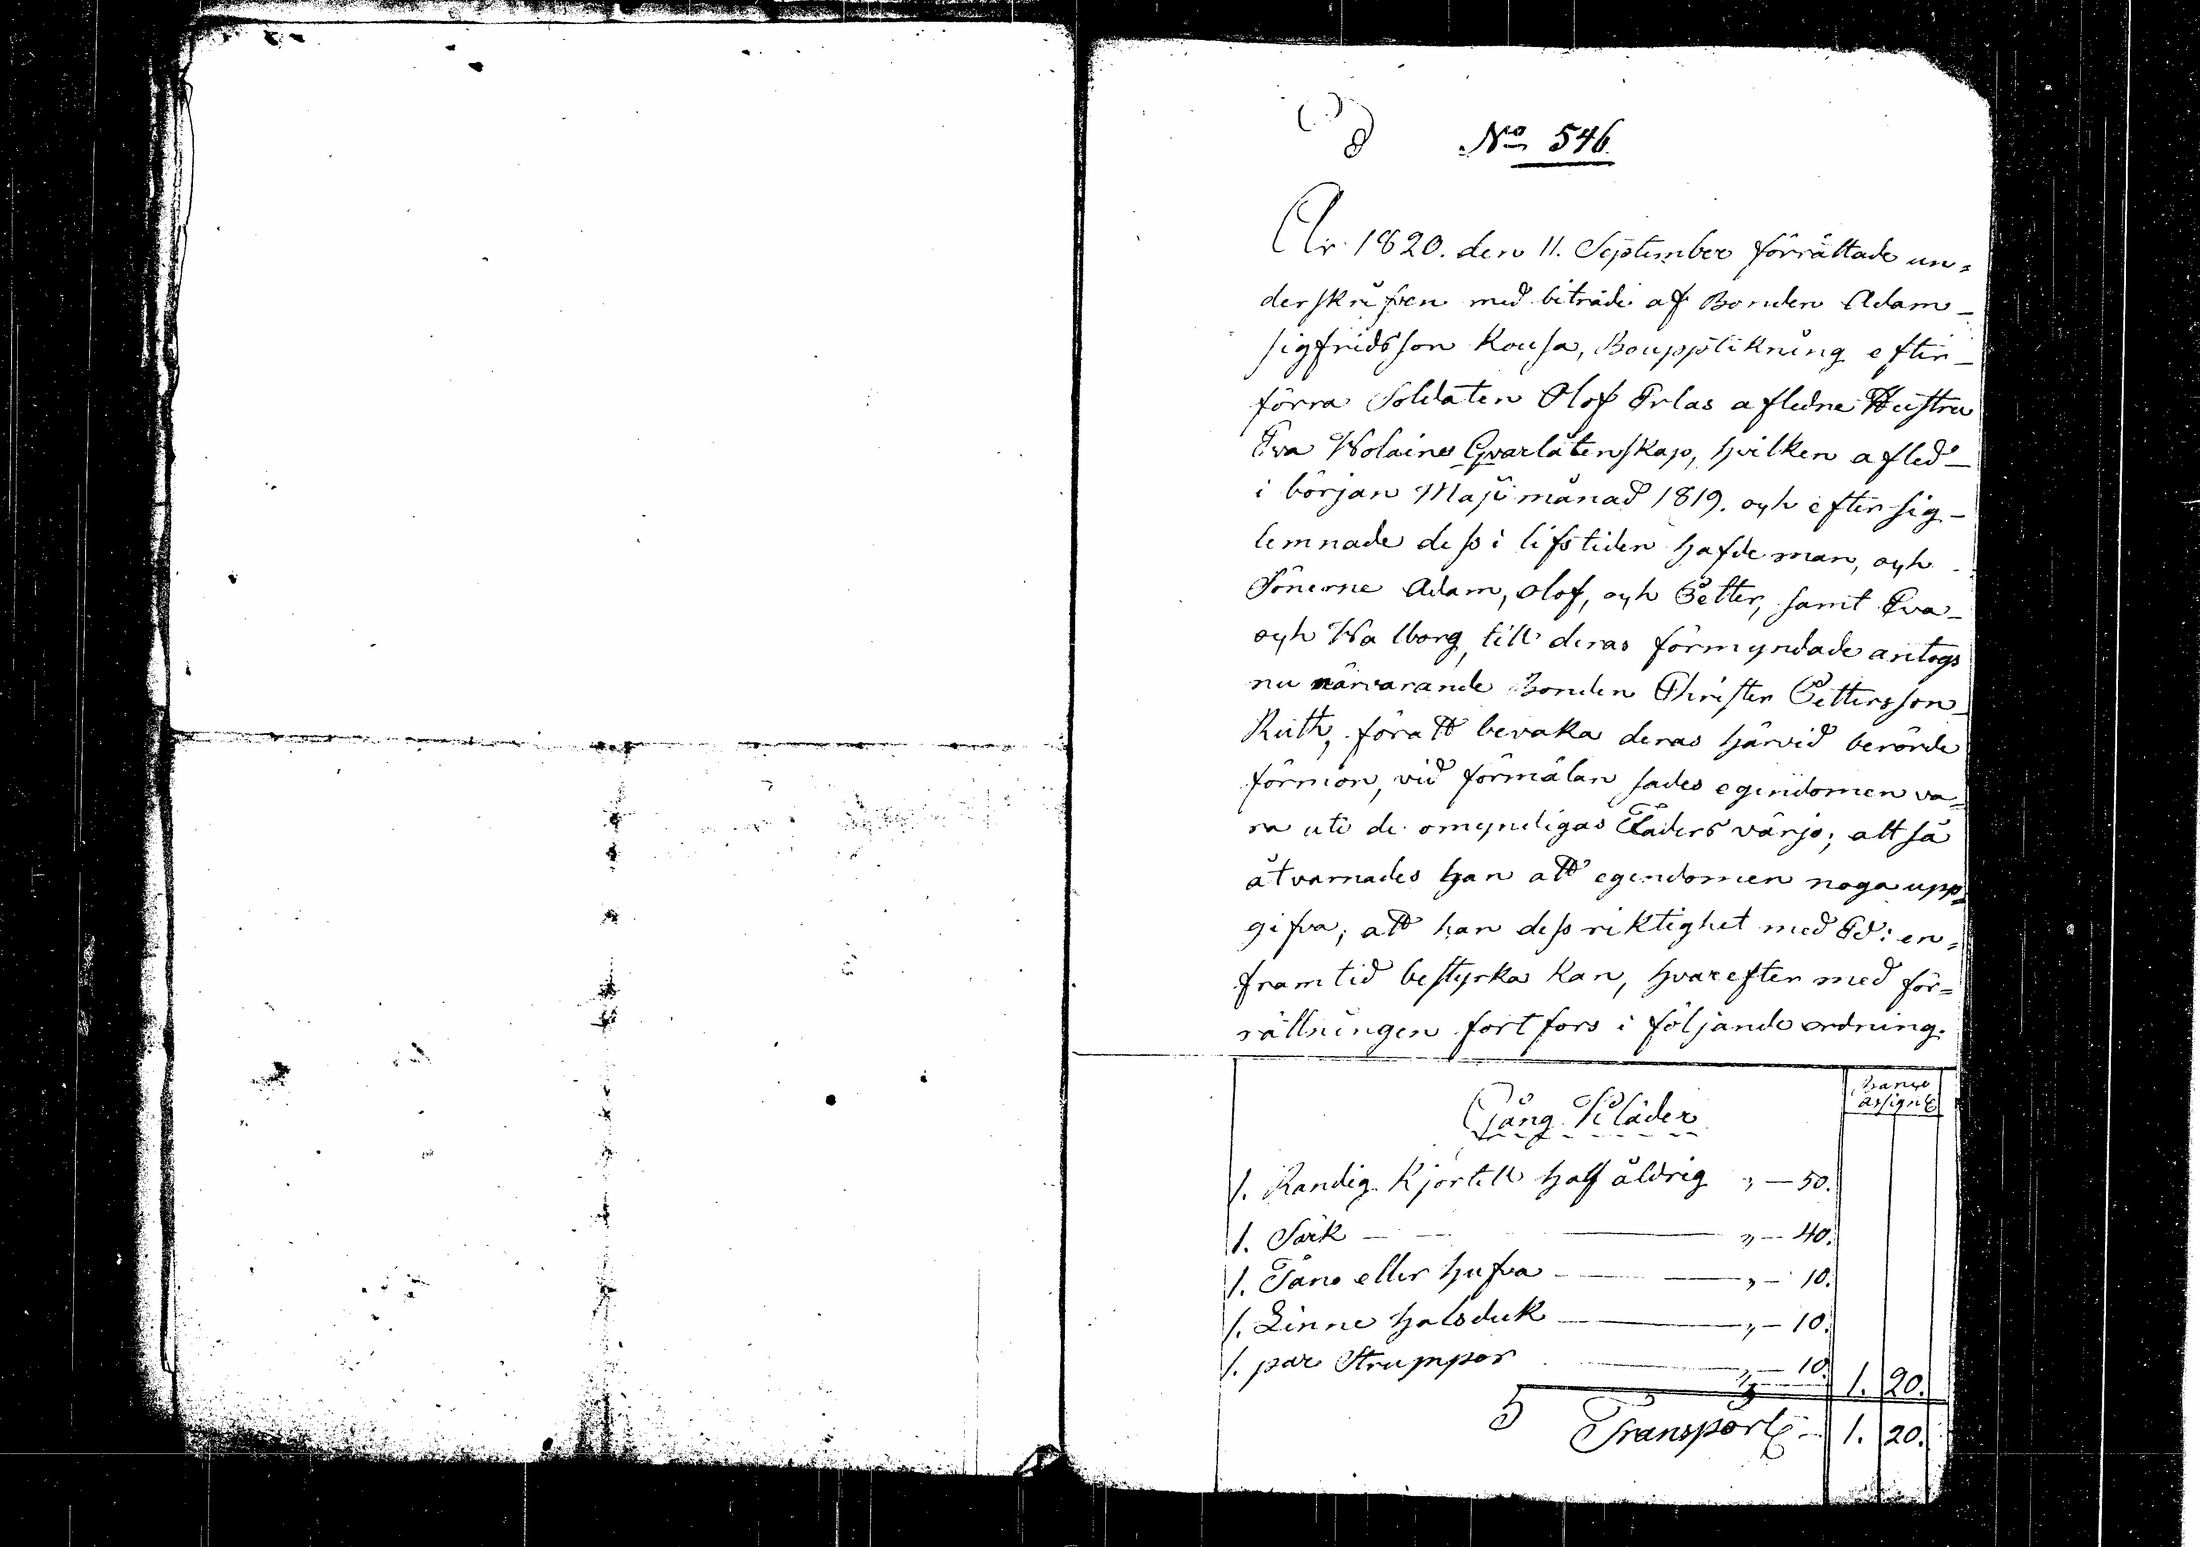 No 546.
År 1820. den 11. September förrättade un=
derskrifven med biträde af Bonden Adam
Sigfridsson Kousa, Boupptikning efter
förra Soldaten Olof Erlas afledne Hustru
Eva Wolaines Qvarlåtenskap, hvilken afled
i början Maji månad 1819. och efter sig
lemnade dess i lifstiden hafde man, och
Sönerne Adam, Olof, och Petter, samt Eva
och Walborg, till deras förmyndade antogs
nu närvarande Bonden Christer Pettersson
Ruth,föratt bevaka deras härvid berörde
förmon, vid förmälan sades egendomen va=
ra uti de omyndigas Faders värjo; alt så
åtvarnades han att egendomen noga upp=
gifva, att han dess riktighet med Ed: en=
framtid bestyrka kan, hvarefter med för=
rättningen fortfors i följande ordning.
Banco
assign:
Gång Kläder
1. Randig Kjortell half åldrig " — 50.
1. Särk — " — 40.
1. Tano eller hufva — " — 10.
1. Linne halsduk — " — 10.
1. par Strumpor — " — 10. 1. 20.
Transport 1. 20.